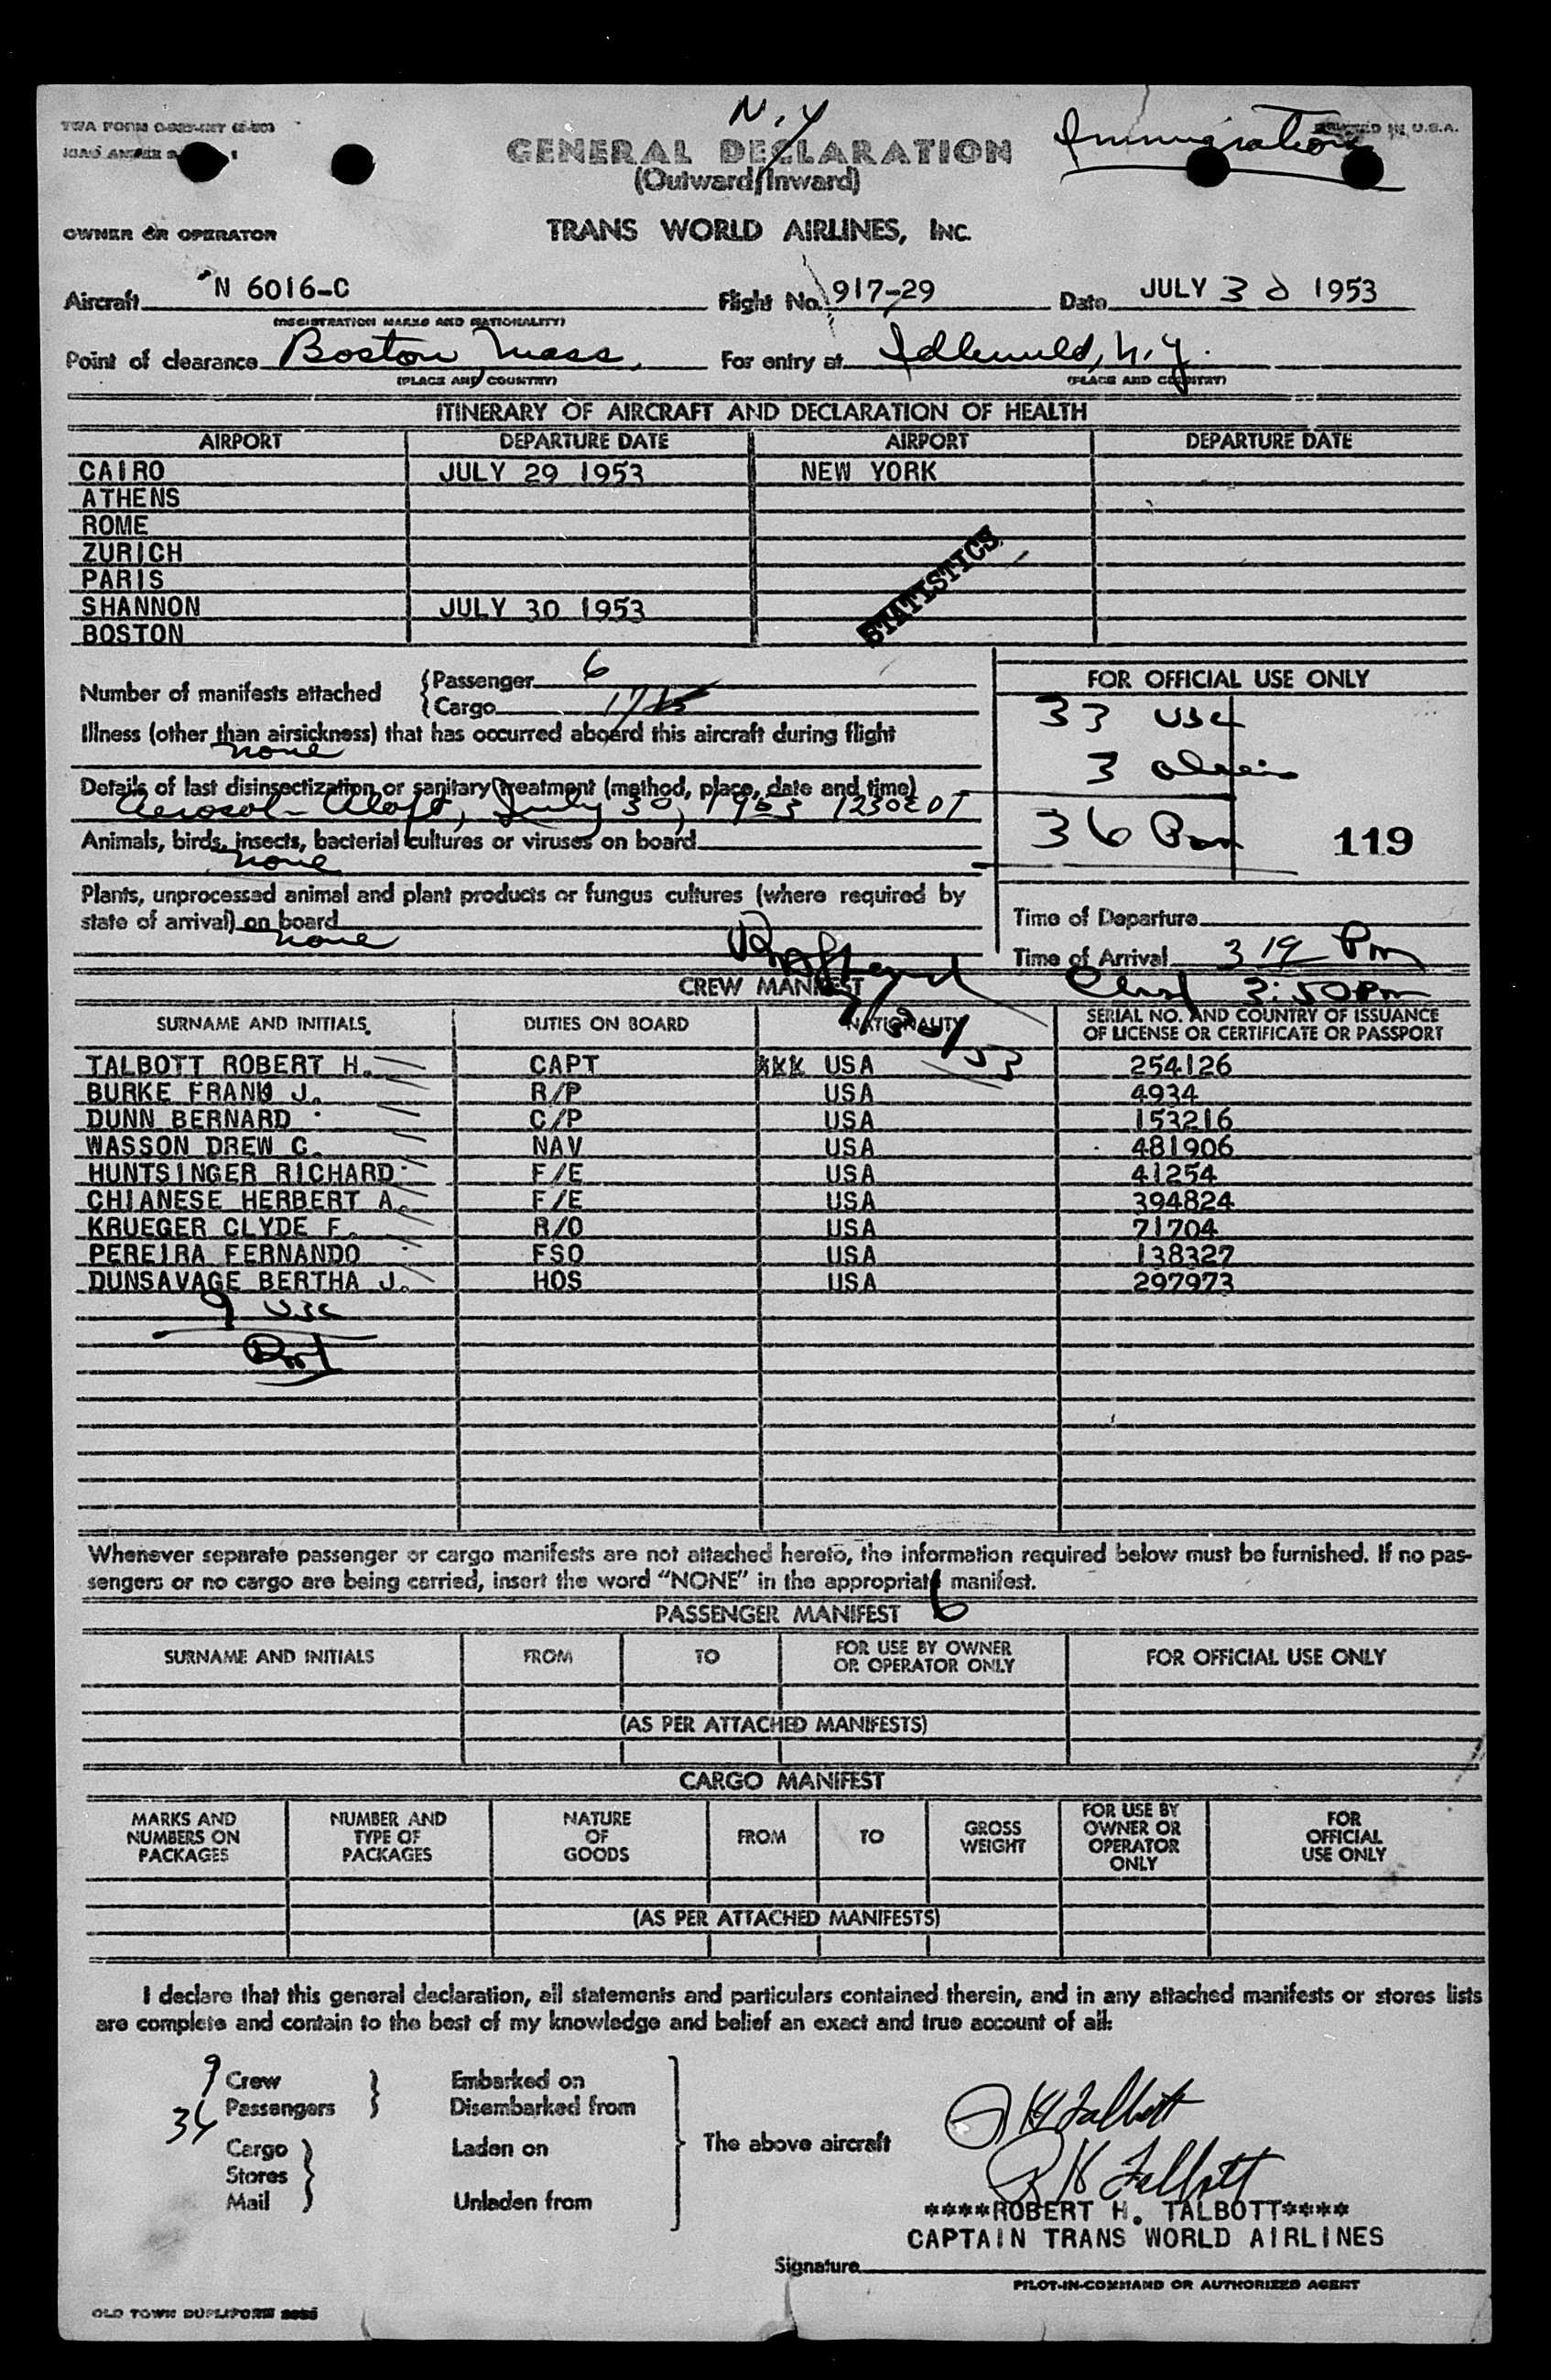 N.Y
TWA FORM
Immigration
PRINTED IN U.S.A.
GENERAL DECLARATION
(Outward/Inward)
OWNER OR OPERATOR
TRANS WORLD AIRLINES, INC.
Aircraft N 6016-C Flight No. 917-29 Date JULY 30 1953
(REGISTRATION MARKS AND NATIONALITY)
Point of clearance Boston, Mass. For entry at Idlewild, N.Y.
(PLACE AND COUNTRY) (PLACE AND COUNTRY)
ITINERARY OF AIRCRAFT AND DECLARATION OF HEALTH
AIRPORT DEPARTURE DATE AIRPORT DEPARTURE DATE
CAIRO JULY 29 1953 NEW YORK
ATHENS
ROME
ZURICH
PARIS
SHANNON JULY 30 1953
BOSTON
STATISTICS
Number of manifests attached
Passenger 6
Cargo
FOR OFFICIAL USE ONLY
33 USC
3 alien
36 119
Illness (other than airsickness) that has occurred aboard this aircraft during flight
none
Details of last disinsectization or sanitary treatment (method, place, date and time)
Aerosol - Aloft, July 30, 1953 1230EDT
Animals, birds, insects, bacterial cultures or viruses on board
none
Plants, unprocessed animal and plant products or fungus cultures (where required by
state of arrival) on board
none
Time of Departure
Time of Arrival 3 19 Pm
3:50 Pm
CREW MANIFEST
SURNAME AND INITIALS DUTIES ON BOARD NATIONALITY SERIAL NO. AND COUNTRY OF ISSUANCE
OF LICENSE OR CERTIFICATE OR PASSPORT
TALBOTT ROBERT H. CAPT XXX USA 254126
BURKE FRANK J. R/P USA 4934
DUNN BERNARD C/P USA 153216
WASSON DREW C. NAV USA 481906
HUNTSINGER RICHARD F/E USA 41254
CHIANESE HERBERT A. F/E USA 394824
KRUEGER CLYDE F. R/O USA 71704
PEREIRA FERNANDO FSO USA 138327
DUNSAVAGE BERTHA J. HOS USA 297973
9 USC
Whenever separate passenger or cargo manifests are not attached hereto, the information required below must be furnished. If no pas-
sengers or no cargo are being carried, insert the word "NONE" in the appropriate manifest.
PASSENGER MANIFEST 6
SURNAME AND INITIALS FROM TO FOR USE BY OWNER
OR OPERATOR ONLY FOR OFFICIAL USE ONLY
(AS PER ATTACHED MANIFESTS)
CARGO MANIFEST
MARKS AND
NUMBERS ON
PACKAGES
NUMBER AND
TYPE OF
PACKAGES
NATURE
OF
GOODS
FROM
TO
GROSS
WEIGHT
FOR USE BY
OWNER OR
OPERATOR
ONLY
FOR
OFFICIAL
USE ONLY
(AS PER ATTACHED MANIFESTS)
I declare that this general declaration, all statements and particulars contained therein, and in any attached manifests or stores lists
are complete and contain to the best of my knowledge and belief an exact and true account of all:
9 Crew Embarked on
36 Passengers Disembarked from
Cargo Laden on
Stores
Mail Unladen from
The above aircraft
R H Talbott
R H Talbott
****ROBERT H. TALBOTT****
CAPTAIN TRANS WORLD AIRLINES
Signature
PILOT-IN-COMMAND OR AUTHORIZED AGENT
OLD TOWN DUPLIFORM